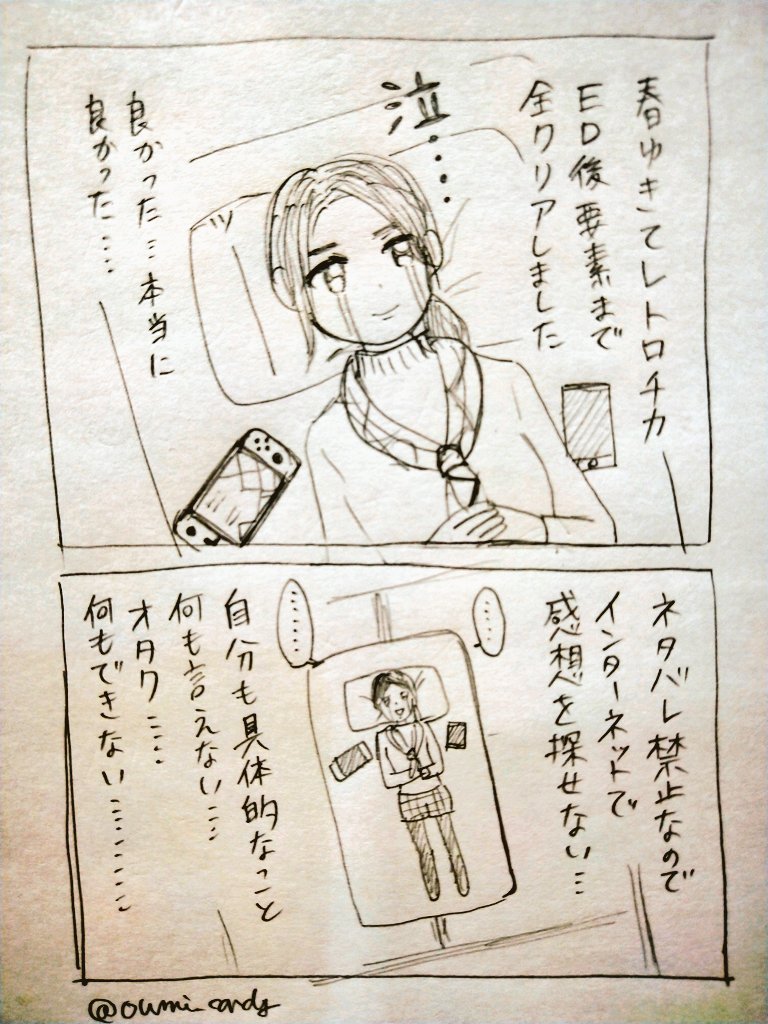 春ゆきてレトロチカ
ED後要素まで
全クリアしました
泣……
良かった…本当に
良かった……
ネタバレ禁止なので
インターネットで
感想を探せない…
……
……
自分も具体的なこと
何も言えない……
オタク……
何もできない…………